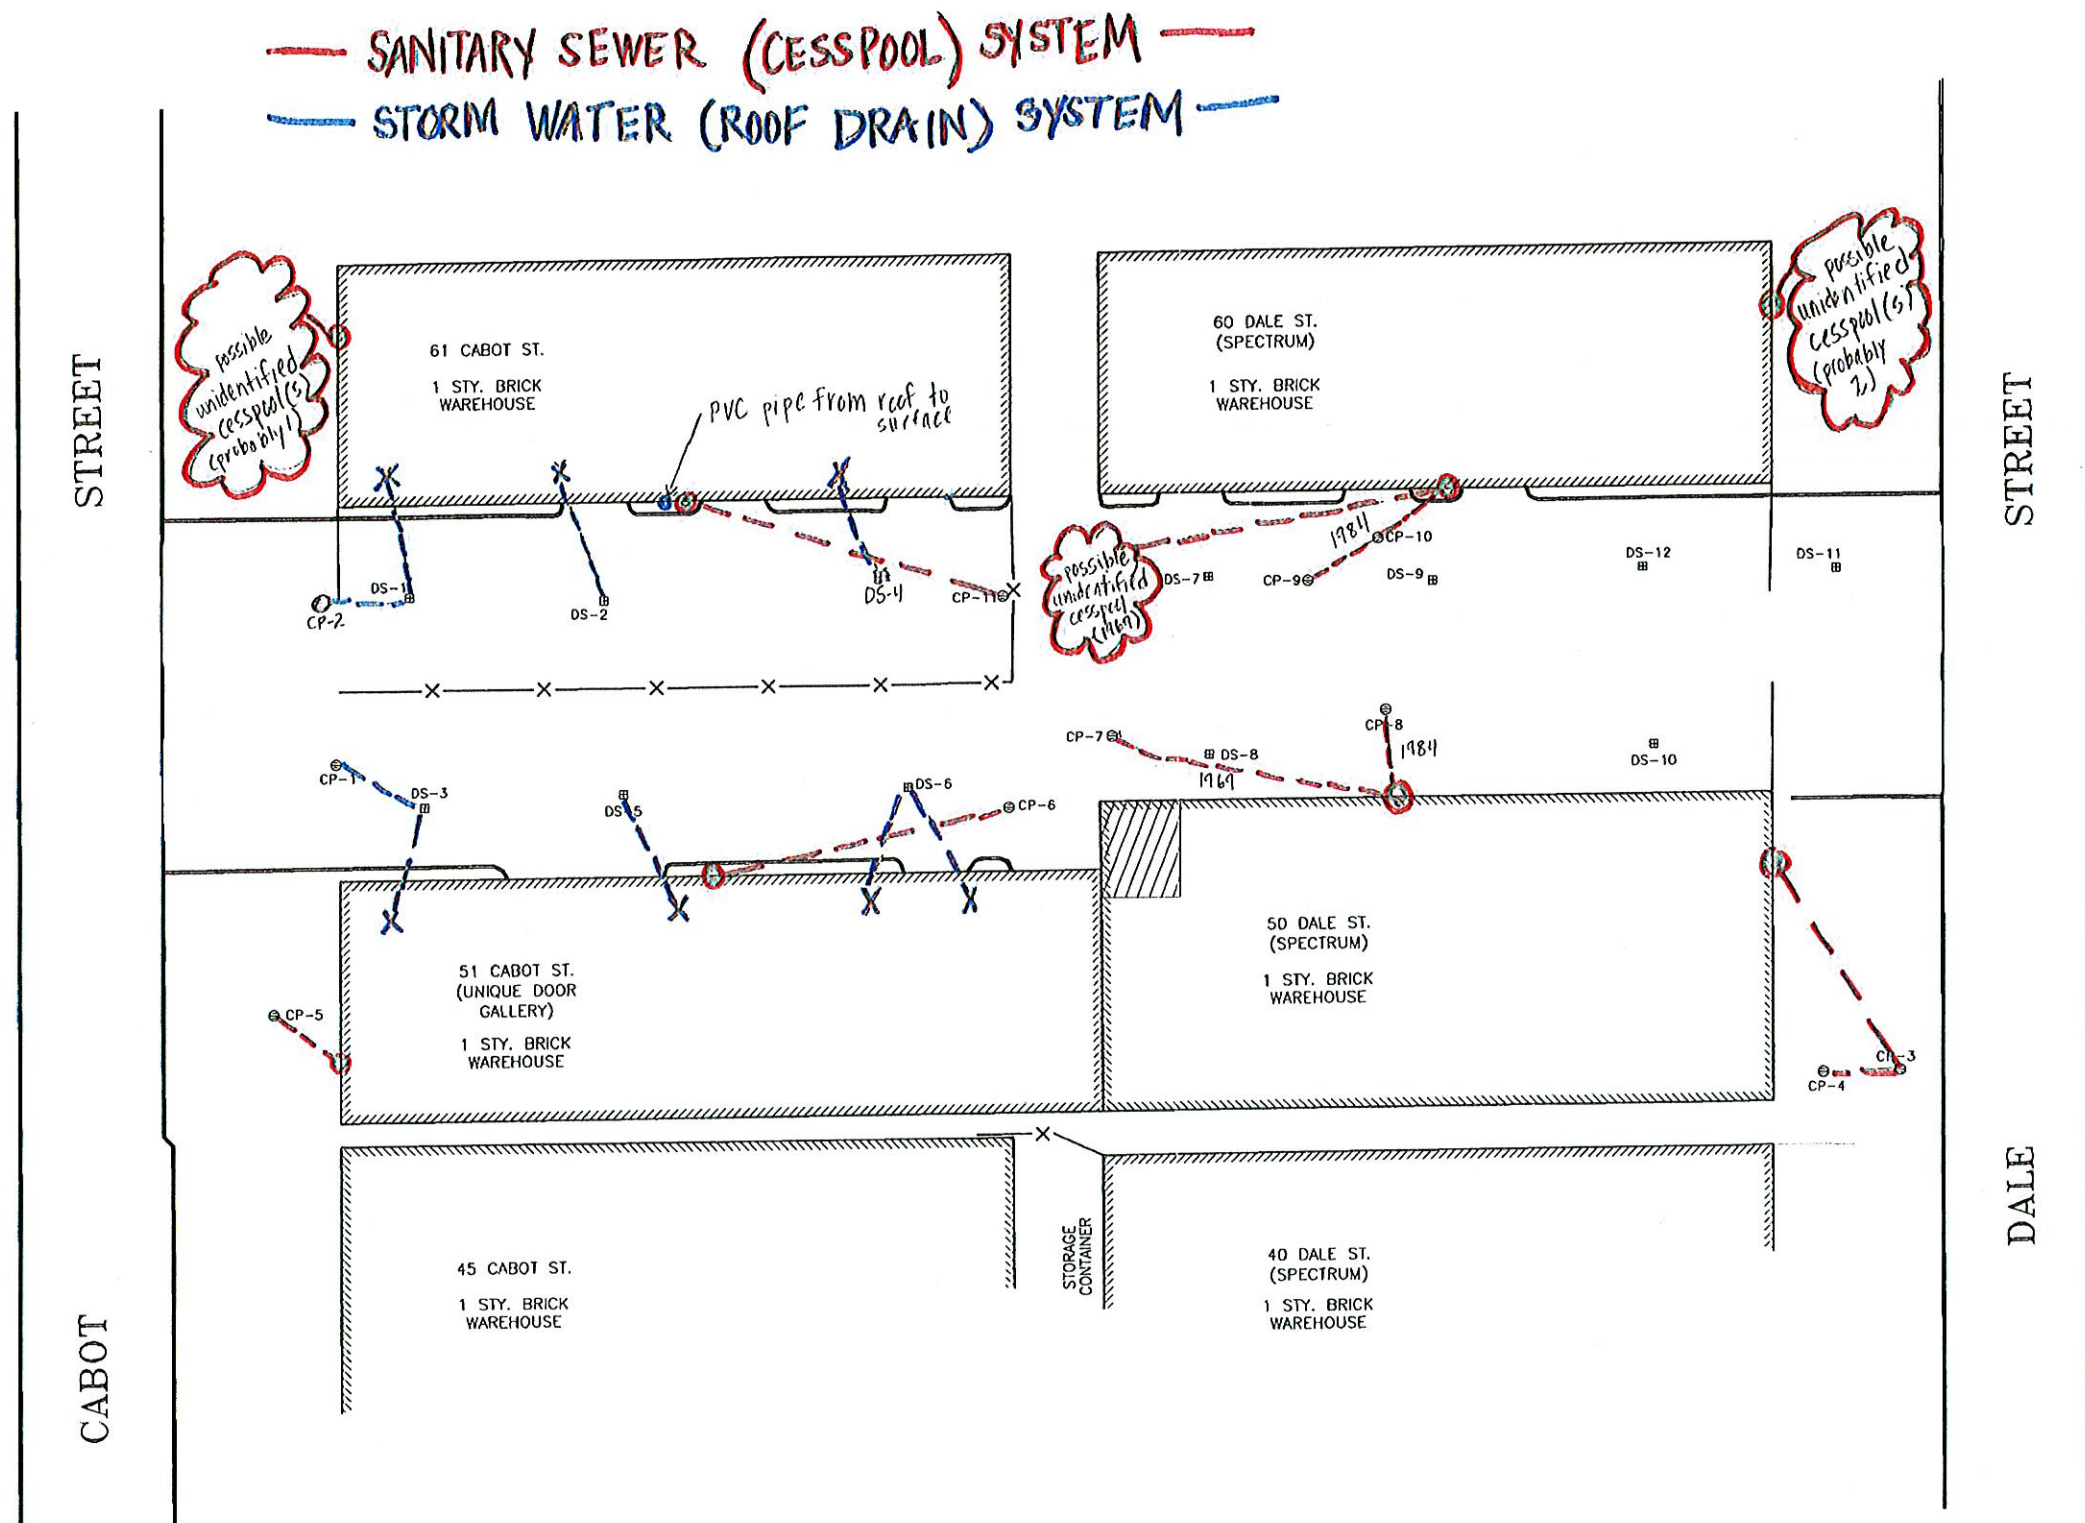 SANITARY SEWER (CESSPOOL) SYSTEM
STORM WATER (ROOF DRAIN) SYSTEM
STREET
CABOT
STREET
DALE
possible
unidentified
cesspool(s)
(probably 1)
61 CABOT ST.
1 STY. BRICK
WAREHOUSE
PVC pipe from roof to
surface
60 DALE ST.
(SPECTRUM)
1 STY. BRICK
WAREHOUSE
possible
unidentified
cesspool(s)
(probably
2)
DS-1
CP-2
DS-2
DS-4
CP-11
possible
unidentified
cesspool
(1969)
DS-7
1984
CP-10
CP-9
DS-9
DS-12
DS-11
CP-1
DS-3
DS-5
DS-6
CP-6
CP-7
DS-8
1969
CP-8
1984
DS-10
51 CABOT ST.
(UNIQUE DOOR
GALLERY)
1 STY. BRICK
WAREHOUSE
CP-5
50 DALE ST.
(SPECTRUM)
1 STY. BRICK
WAREHOUSE
CP-3
CP-4
45 CABOT ST.
1 STY. BRICK
WAREHOUSE
STORAGE
CONTAINER
40 DALE ST.
(SPECTRUM)
1 STY. BRICK
WAREHOUSE